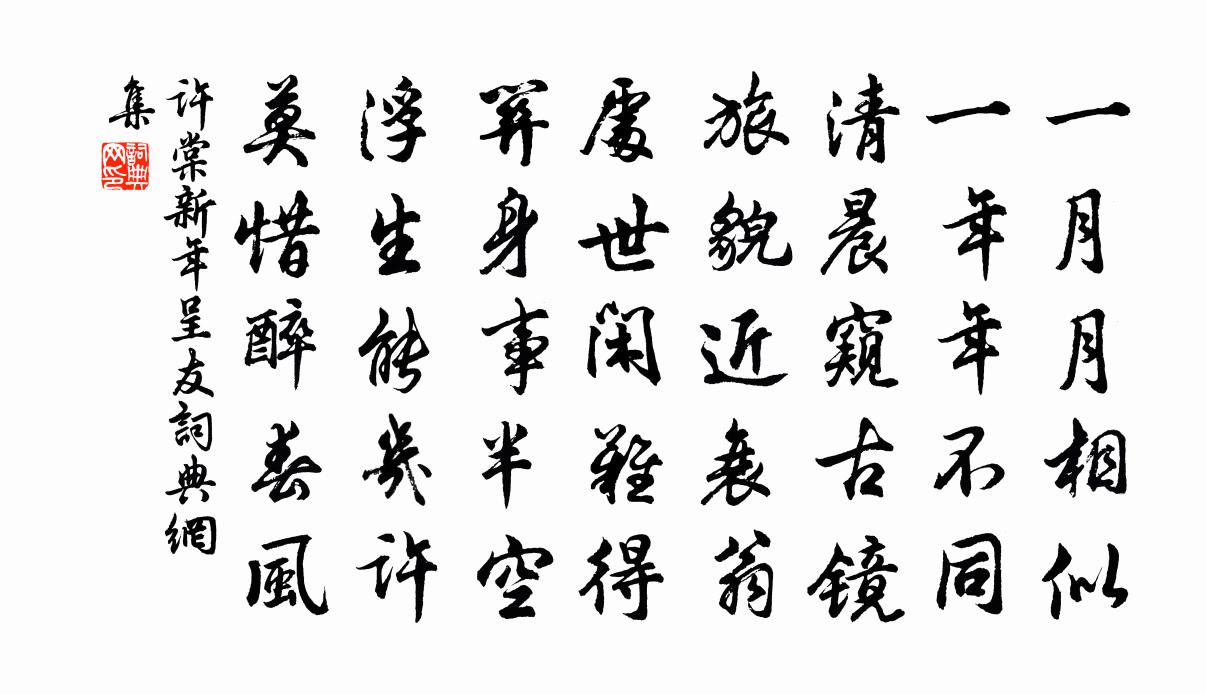 一月月相似
一年年不同
清晨窺古鏡
旅貌近衰翁
處世閑難得
關身事半空
浮生能幾許
莫惜醉春風
許棠新年呈友詞典網
集
詞典
网印